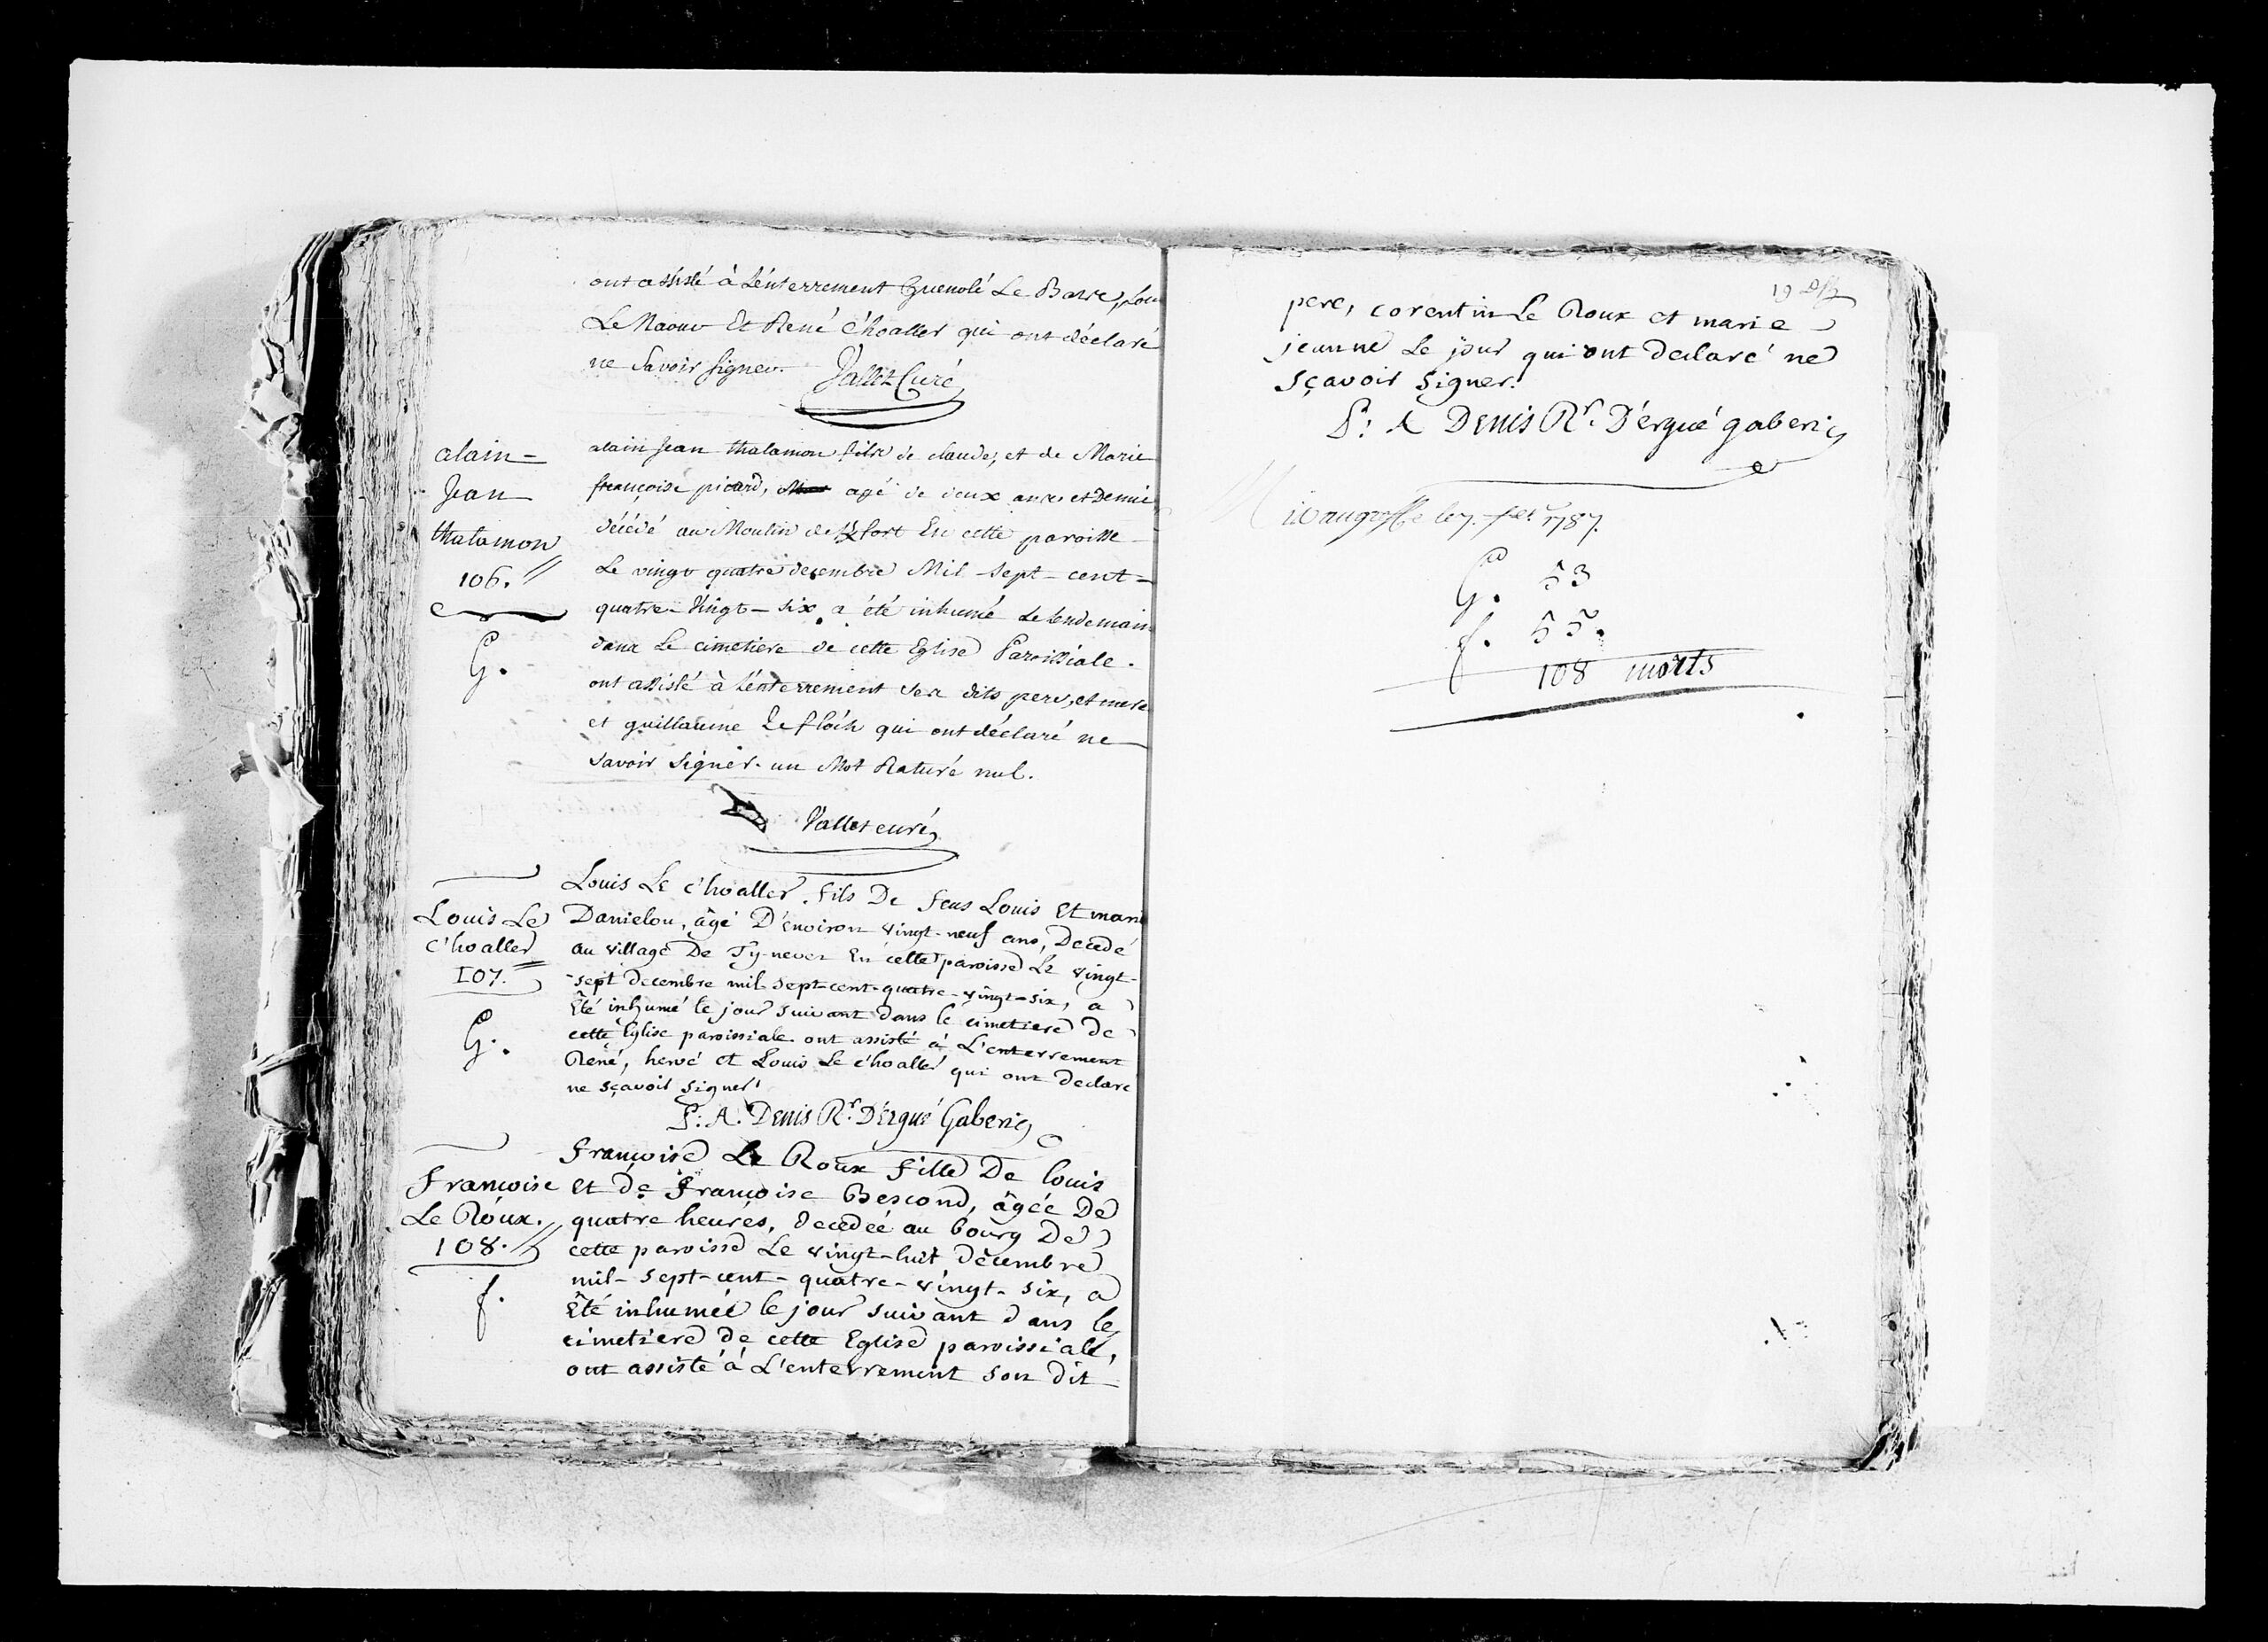 ont assisté à L'énterrement Guenolé Le Barre, Lou
Le Naour Et René C'hoaller qui ont déclaré
ne Savoir signer. Vallet Curé
alain =
Jean
thalamon
106.
G.
alain Jean thalamon fils de claude, et de Marie
françoise picard, agé de deux ans et Demie
décédé au Moulin de En cette paroisse
Le vingt quatre decembre Mil Sept-cent-
quatre-Vingt-six a été inhumé Le lendemain
dans Le cimetiere de cette Eglise Paroissiale.
ont assisté à L'énterrement ses dits pere, et mere
et guillaume Le floch qui ont déclaré ne
savoir signer. un Mot Raturé nul.
Vallet curé
Louis Le
c'hoaller
107.
G.
Louis Le c'hoaller, fils De feus Louis Et marie
Danielou, âgé D'environ vingt-neuf ans, Decedé
au village De Ty-nevez En cette paroisse Le vingt-
-sept decembre mil-sept-cent-quatre-vingt-six, a
Été inhumé le jour suivant dans le cimetiere de
cette Eglise paroissiale. ont assisté à L'enterrement
René, hervé et Louis Le c'hoaller qui ont declaré
ne sçavoir signer.
P: A. Denis Rr. D'Ergué Gaberic
Françoise
Le Roux.
108.
f.
Françoise Le Roux fille De louis
et de Françoise Bescond, âgée De
quatre heurés, decedeé au bourg De
cette paroisse Le vingt-huit decembre
mil-sept-cent-quatre-vingt-six, a
Été inhumeé le jour suivant dans le
cimetiere de cette Eglise paroissiale,
ont assisté à L'enterrement son dit
19
pere, corentin Le Roux et marie
jeanne Le jour qui ont declaré ne
sçavoir signer.
P: A Denis Rr. D'érgué gaberic
au greffe le 7. 1787.
G. 53
f. 55.
108 morts